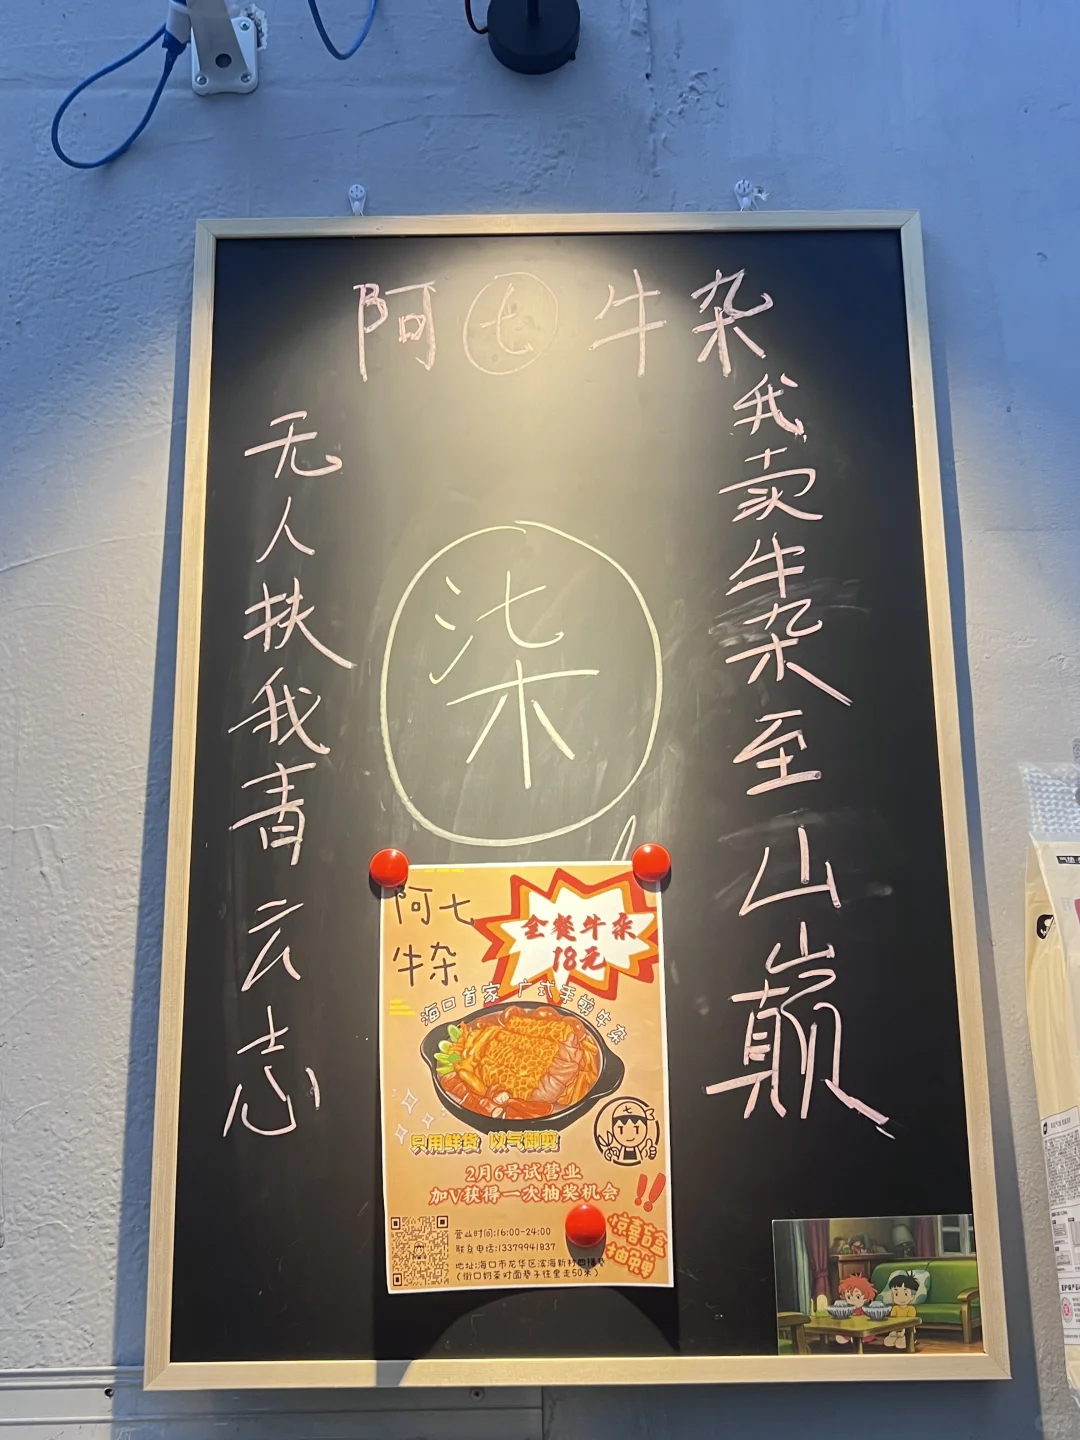 阿七牛杂
我卖牛杂至山巅
无人扶我青云志
柒
阿七
牛杂
全餐牛杂
18元
海口首家 广式手剪牛杂
七
只用鲜货 以气御剪
2月6号试营业
加V获得一次抽奖机会
!!
惊喜盲盒
营业时间:16:00-24:00
联系电话:13379941837
地址:海口市龙华区滨海新村四横巷
(街口奶茶对面巷子往里走50米)